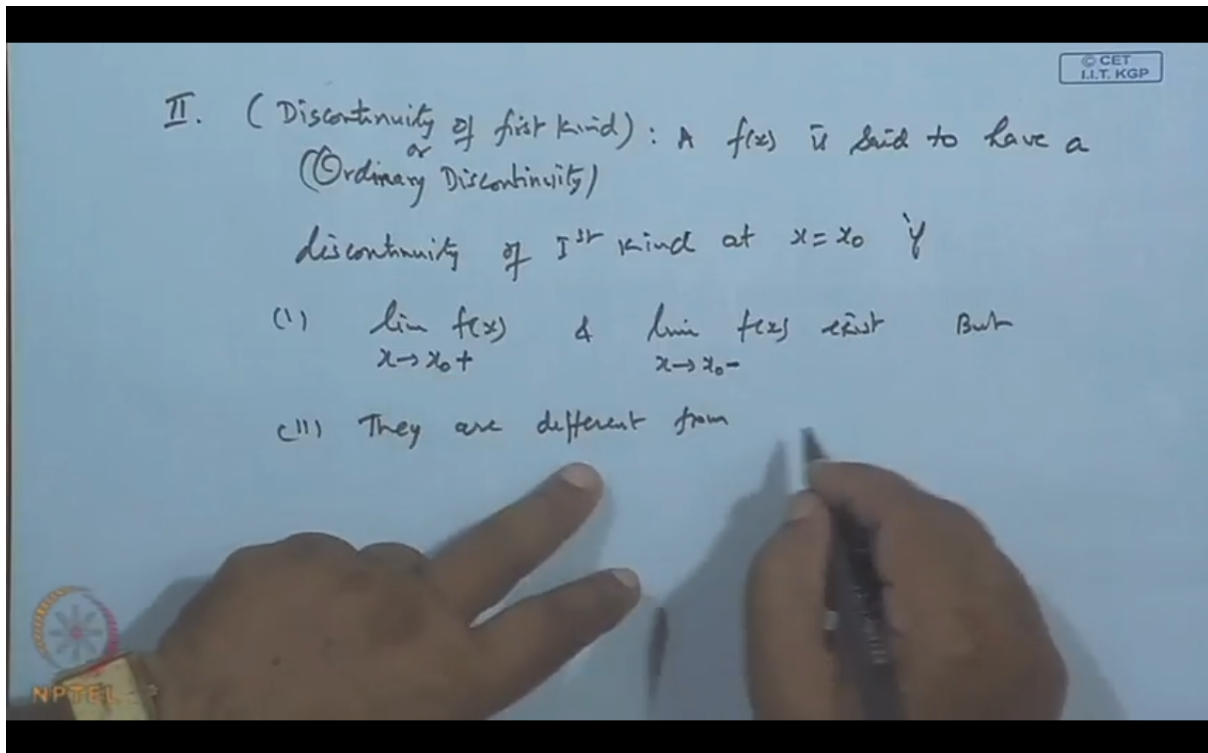 © CET
I.I.T. KGP
II. (Discontinuity of first kind) : A f(x) is said to have a
or
(Ordinary Discontinuity)
discontinuity of Ist kind at x = x0 if
(i) lim f(x) & lim f(x) exist But
x→x0+ x→x0-
(ii) They are different from
NPTEL